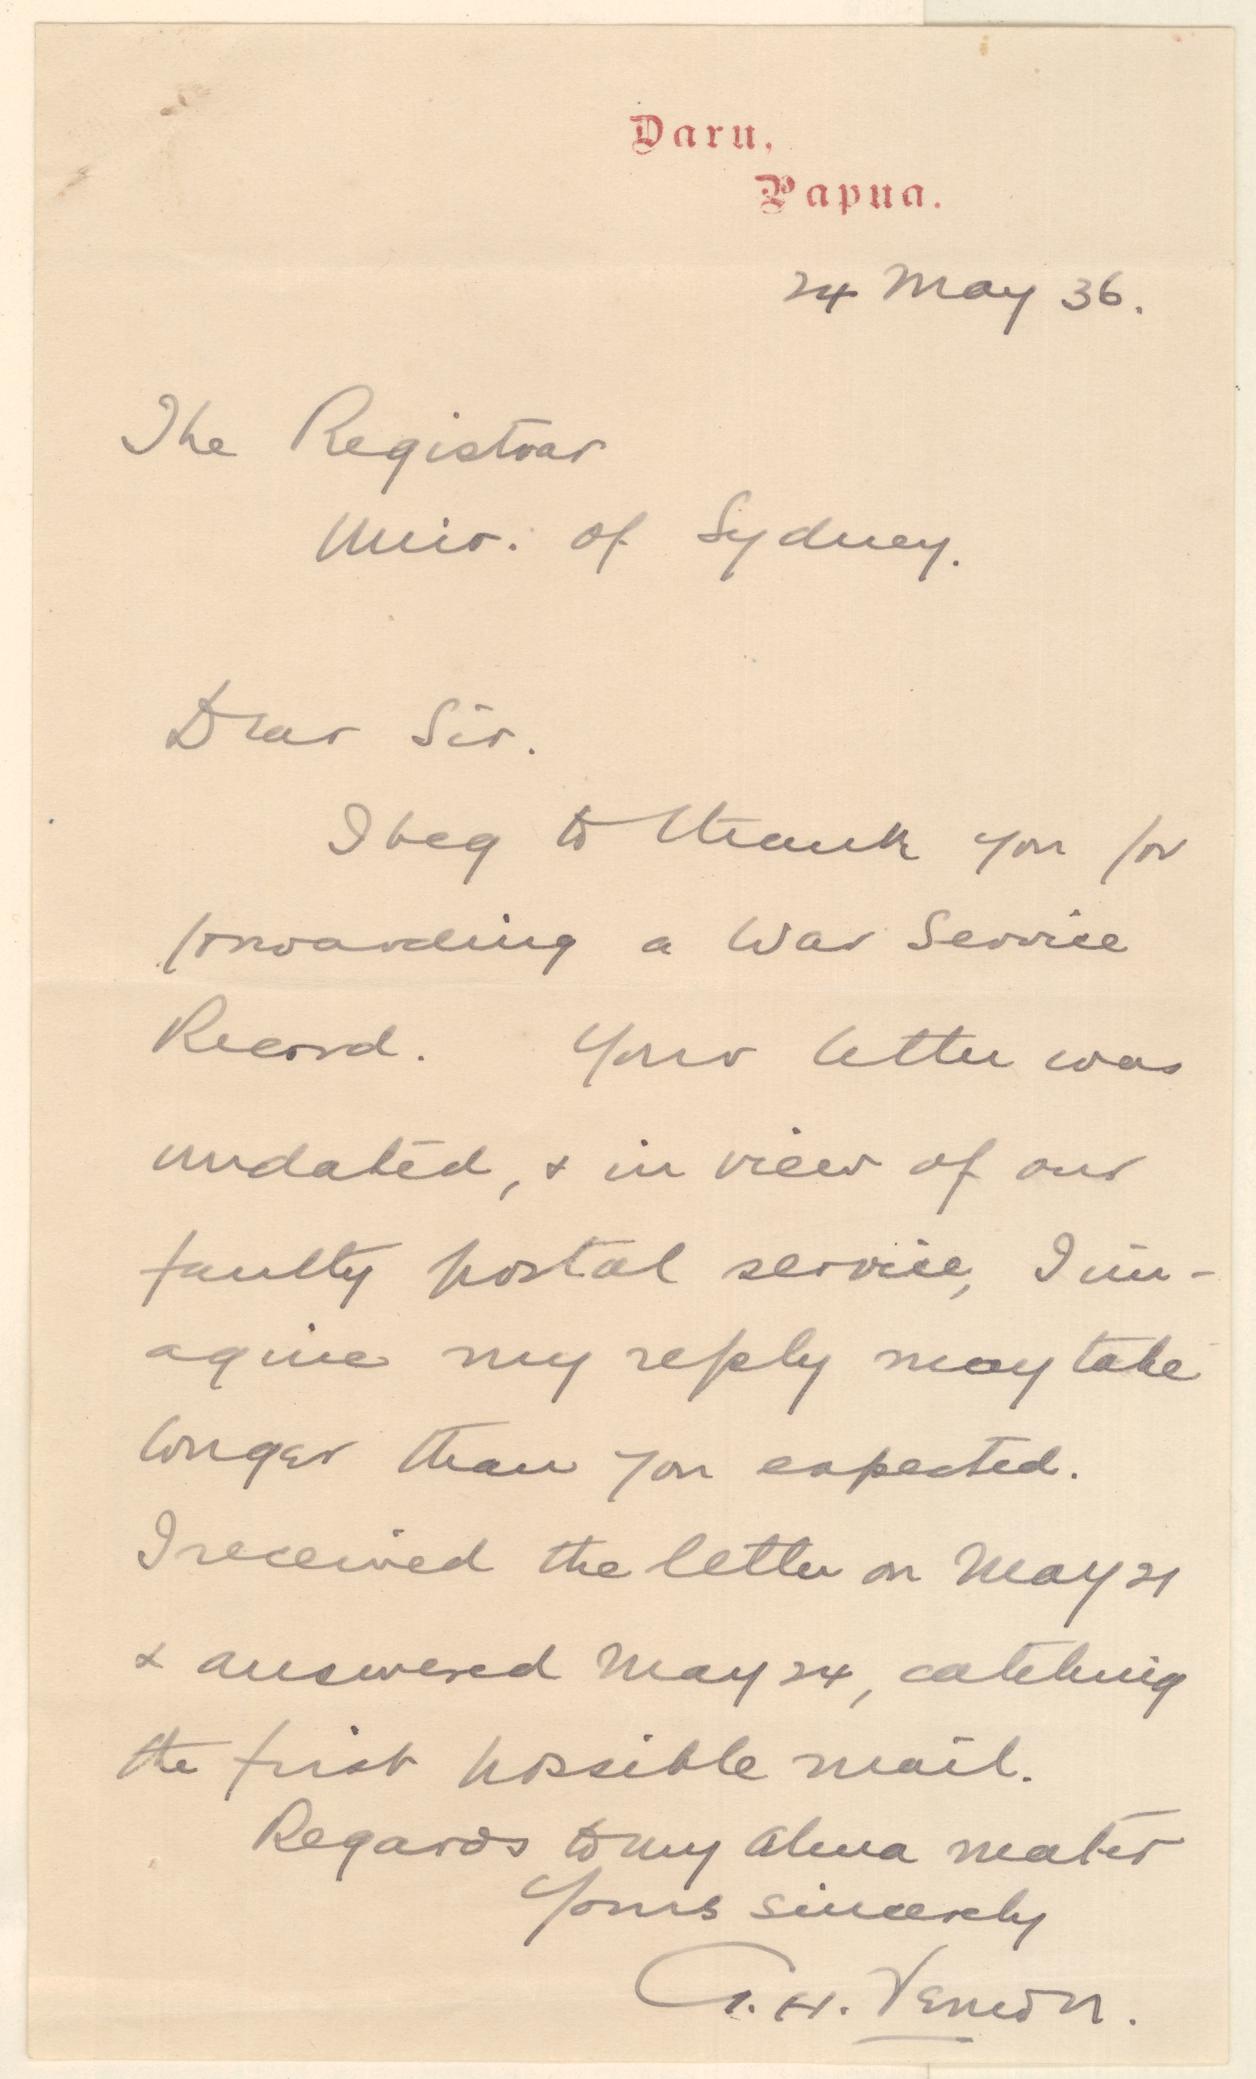 Daru,
Papua.
24 May 36.
The Registrar
Univ. of Sydney.
Dear Sir.
I beg to thank you for
forwarding a War Service
Record. Your letter was
undated, & in view of our
faulty postal service, I im-
agine my reply may take
longer than you expected.
I received the letter on May 21
& answered May 24, catching
the first possible mail.
Regards to my Alma mater
Yours sincerely
G. H. Vernon.